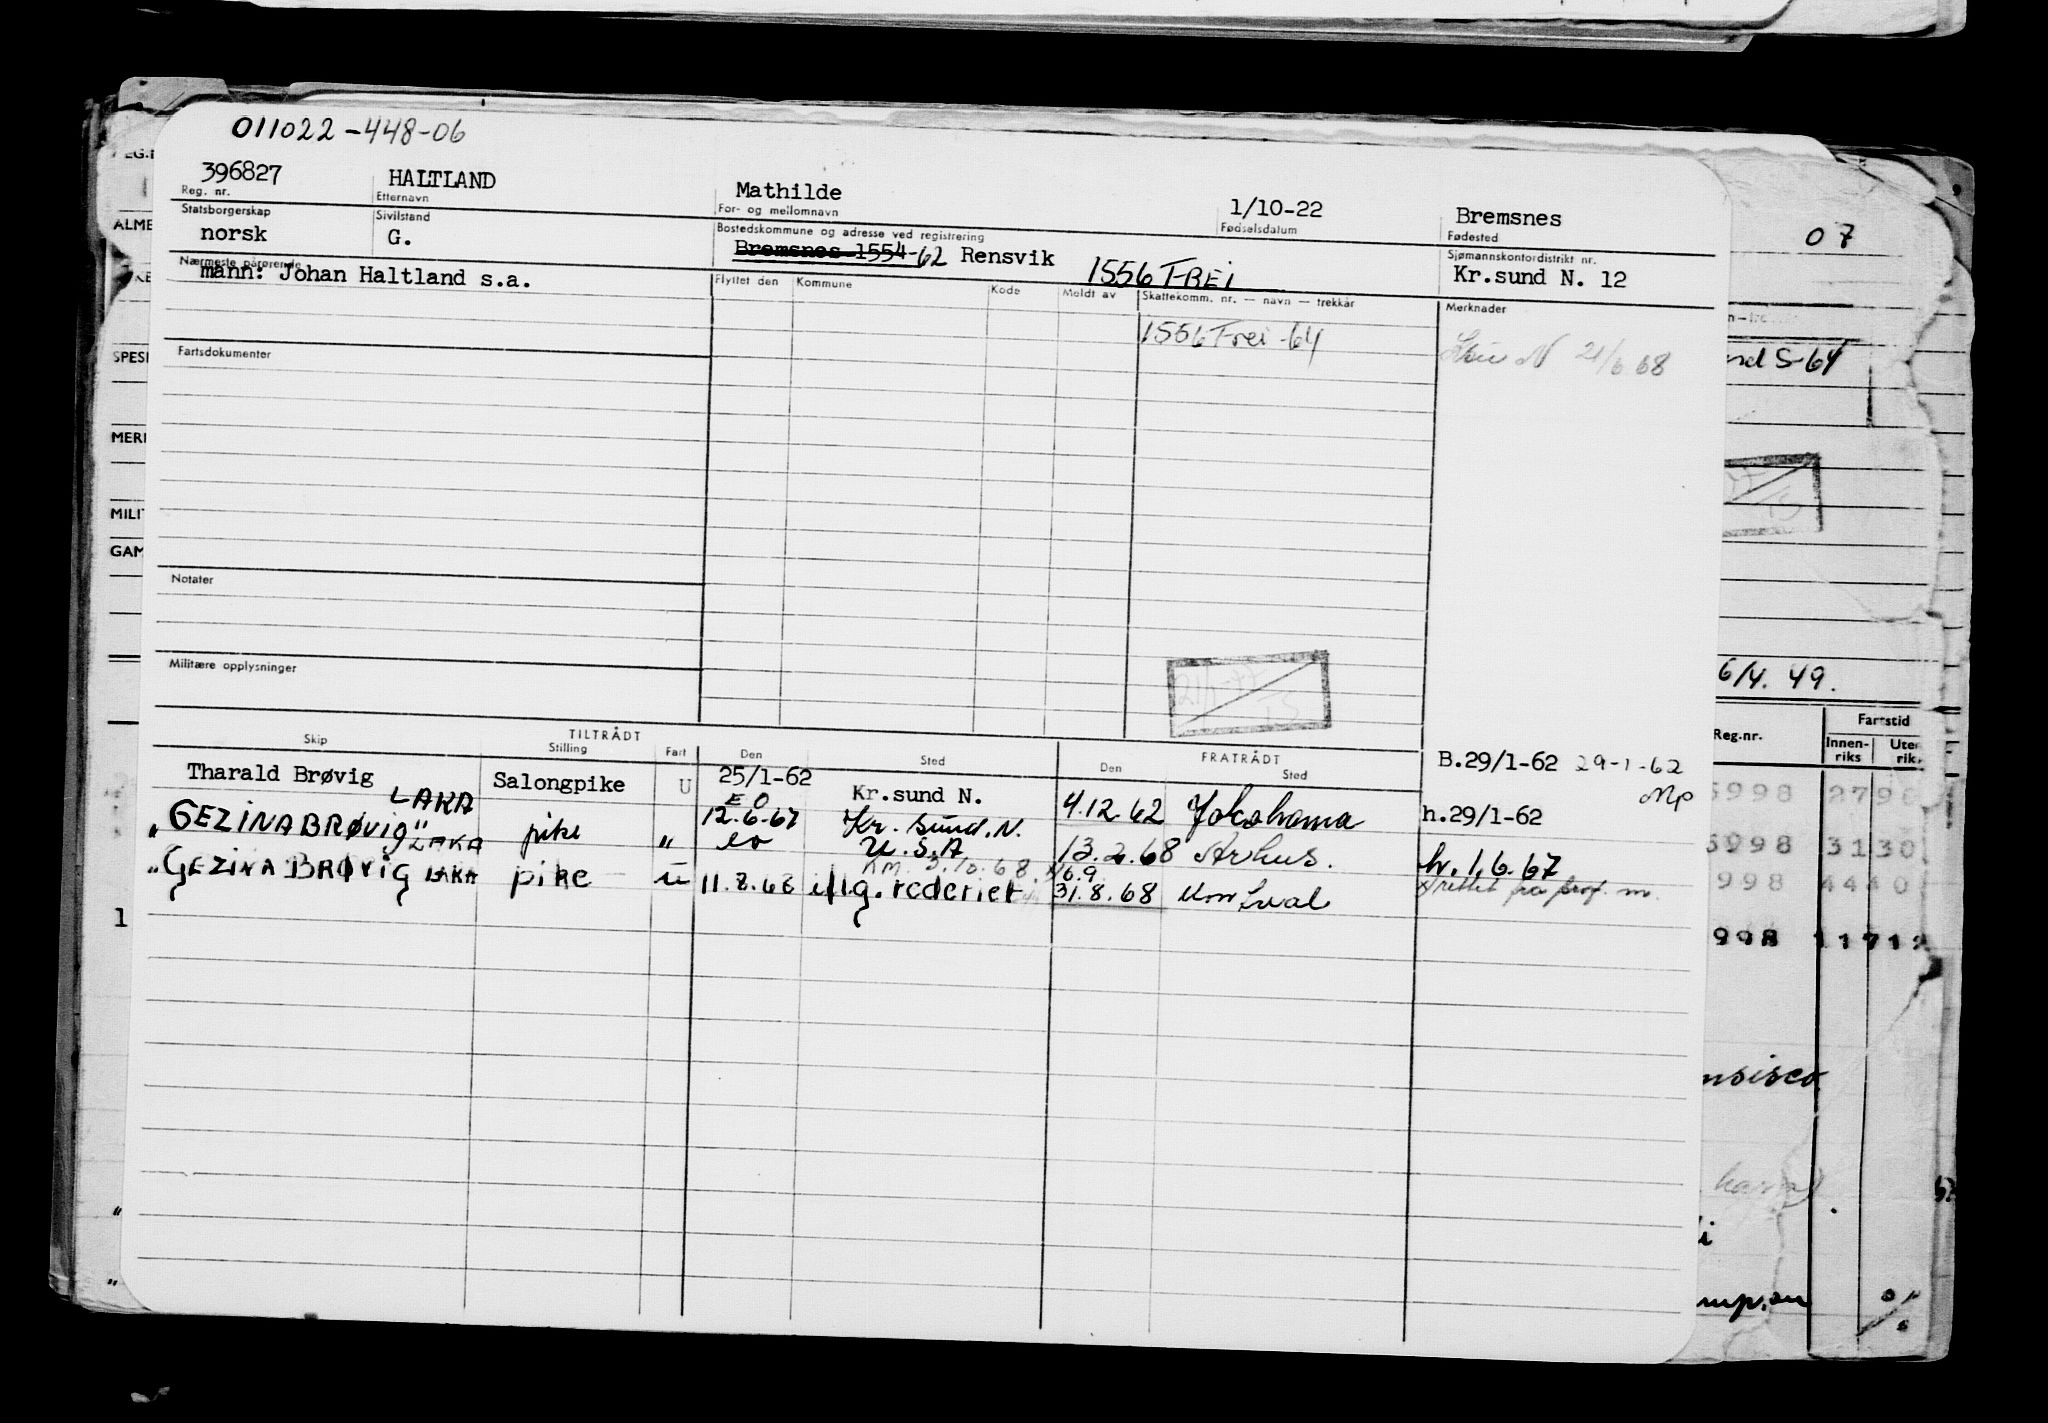 011022-448-06
396827 HALTLAND Mathilde 1/10-22 Bremsnes
Reg. nr. Etternavn For- og mellomnavn Fødselsdatum Fødested
Statsborgerskap Sivilstand Bostedskommune og adresse ved registrering Sjømannskontordistrikt nr.
norsk G. Bremsnes 1554-62 Rensvik 1556 FREI Kr.sund N. 12
Nærmeste pårørende
mann: Johan Haltland s.a.
Flyttet den Kommune Kode Meldt av Skattekomm. nr. — navn — trekkår Merknader
1556 Frei-64
N 21/6 68
Fartsdokumenter
Notater
Militære opplysninger
21/1-77
TILTRÅDT FRATRÅDT
Skip Stilling Fart Den Sted Den Sted
Tharald Brøvig LAKA Salongpike U 25/1-62 Kr.sund N. 4.12.62 Yokohama B.29/1-62 29-1-62
h.29/1-62
EO
"GEZINA BRØVIG" LAKA pike " 12.6.67 Kr. sund. N. 13.2.68 Århus.
eo U.S.A
h.1.6.67
AM. 3.10.68.
"GEZINA BRØVIG LAKA pike u 11.8.68 iflg. rederiet 31.8.68
x) rettet fra
07
6/4. 49.
Reg.nr. Fartstid
Innenriks
1